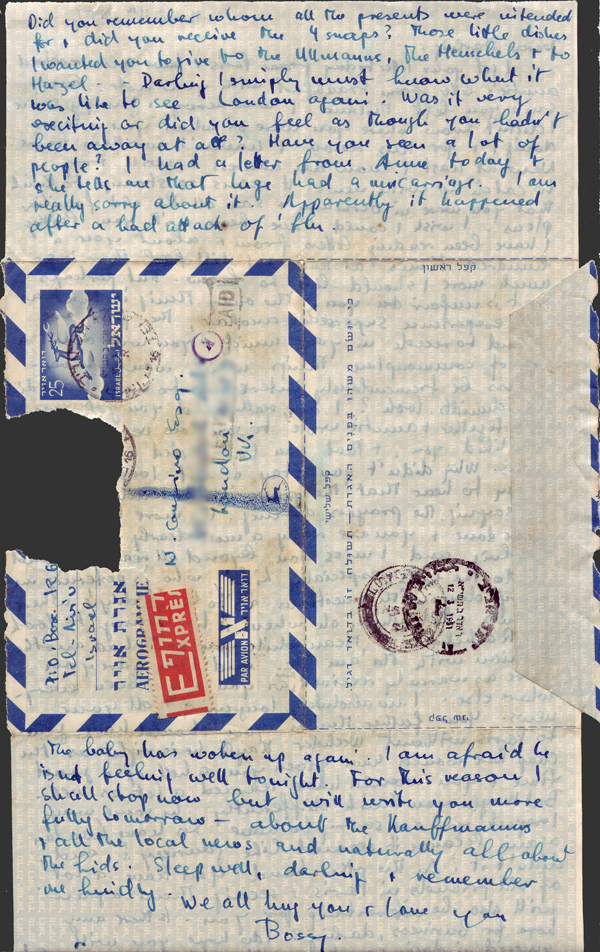 Did you remember whom all the presents were intended
for & did you receive the 4 snaps? Those little dishes
I wanted you to give to the Ullmanns, the Henschels & to
Hazel. - Darling I simply must know what it
was like to see London again. Was it very
exciting or did you feel as though you hadn't
been away at all? Have you seen a lot of
people? I had a letter from Anne today &
she tells me that Inge had a miscarriage. I am
really sorry about it. Apparently it happened
after a bad attack of 'flu.
קפל ראשון
ישראל
ISRAEL
דואר אויר
25
PAID
Esq.
London
U.K.
קפל שלישי
כי ישׂים משהו בפנים האגרת – תשולח זו בדואר רגיל
12 1951
P.O. Box
Tel-Aviv
Israel
אגרת אויר
AEROGRAMME
EXPRES
דואר אויר
PAR AVION
קפל שני
The baby has woken up again. I am afraid he
is not feeling well tonight. For this reason I
shall stop now but will write you more
fully tomorrow - about the Kauffmanns
& all the local news and naturally all about
the kids. Sleep well, darling & remember
me kindly. We all hug you & love you
Bossy.